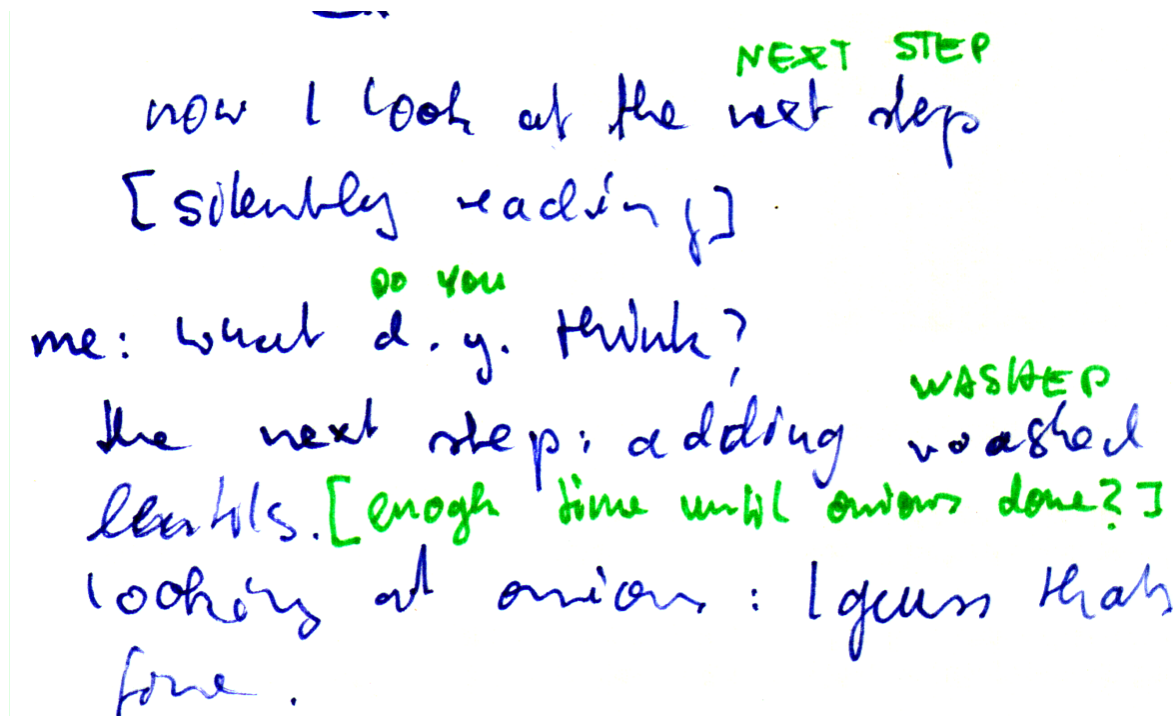 NEXT STEP
now I look at the next step
[silently reading]
DO YOU
me: what d. y. think?
WASHED
the next step: adding washed
lentils. [enogh time until onions done?]
looking at onions: I guess thats
fine.